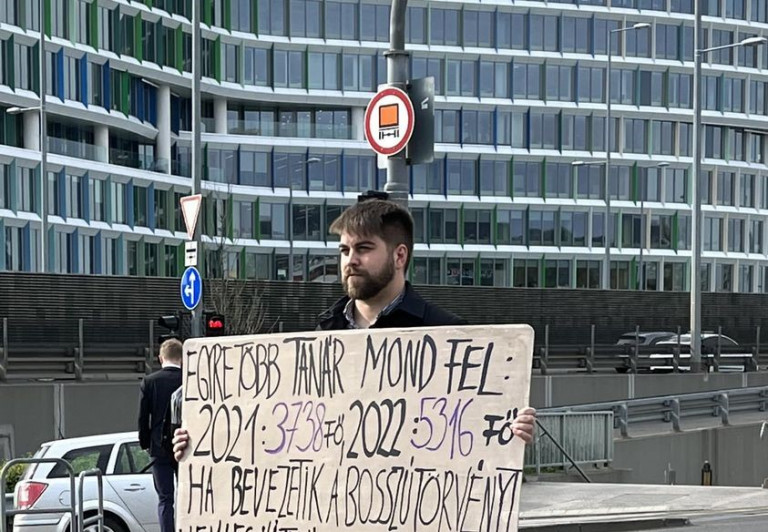 EGYRE TÖBB TANÁR MOND FEL:
2021: 3738 FŐ, 2022: 5316 FŐ
HA BEVEZETIK A BOSSZÚTÖRVÉNYT